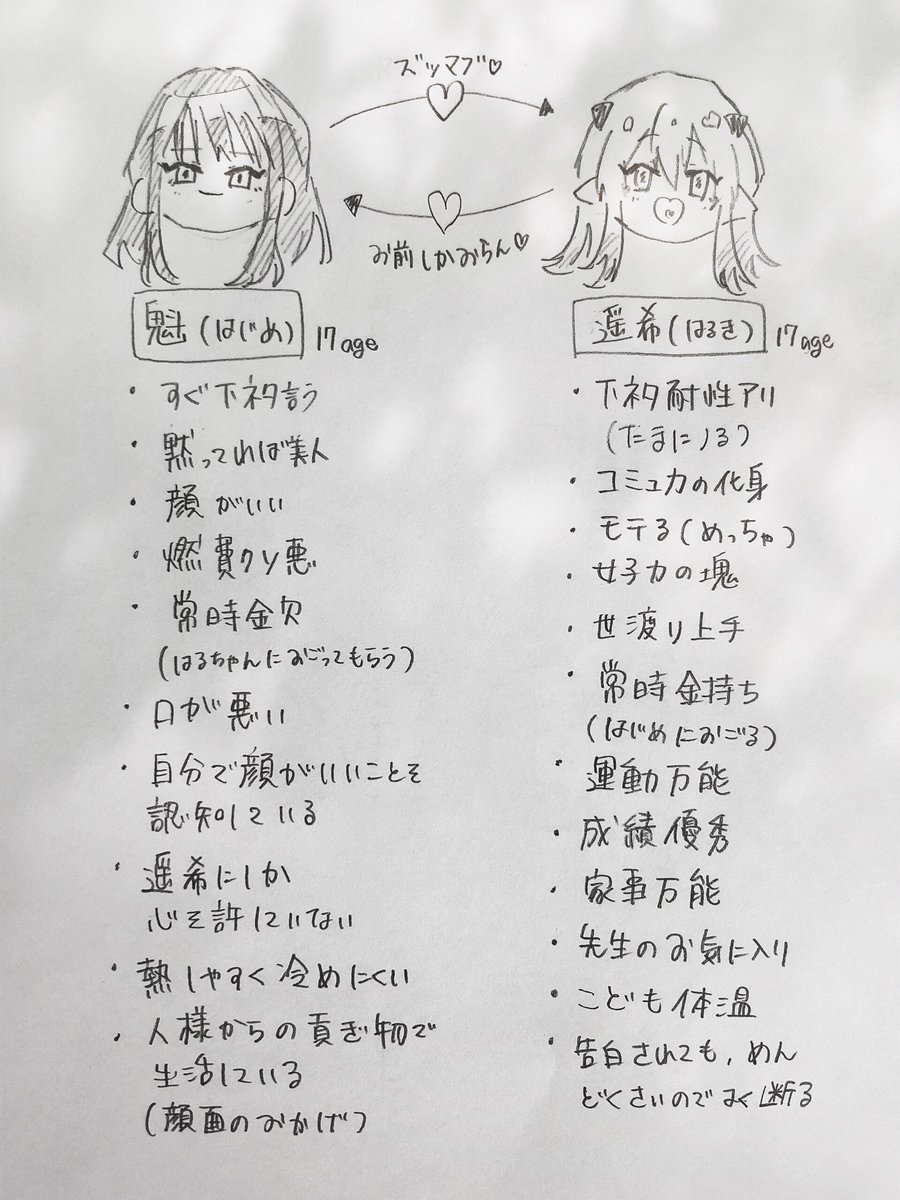 ズッマブ♡
お前しかおらん♡
魁(はじめ) 17age
・すぐ下ネタ言う
・黙ってれば美人
・顔がいい
・燃費クソ悪
・常時金欠
(はるちゃんにおごってもらう)
・口が悪い
・自分で顔がいいことを
認知している
・遥希にしか
心を許していない
・熱しやすく冷めにくい
・人様からの貢ぎ物で
生活している
(顔面のおかげ)
遥希(はるき) 17age
・下ネタ耐性アリ
(たまにノる)
・コミュ力の化身
・モテる(めっちゃ)
・女子力の塊
・世渡り上手
・常時金持ち
(はじめにおごる)
・運動万能
・成績優秀
・家事万能
・先生のお気に入り
・こども体温
・告白されても、めん
どくさいのでよく断る